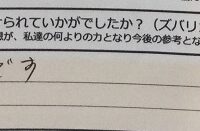 けられていかがでしたか？（ズバリ
想が、私達の何よりの力となり今後の参考とな
です